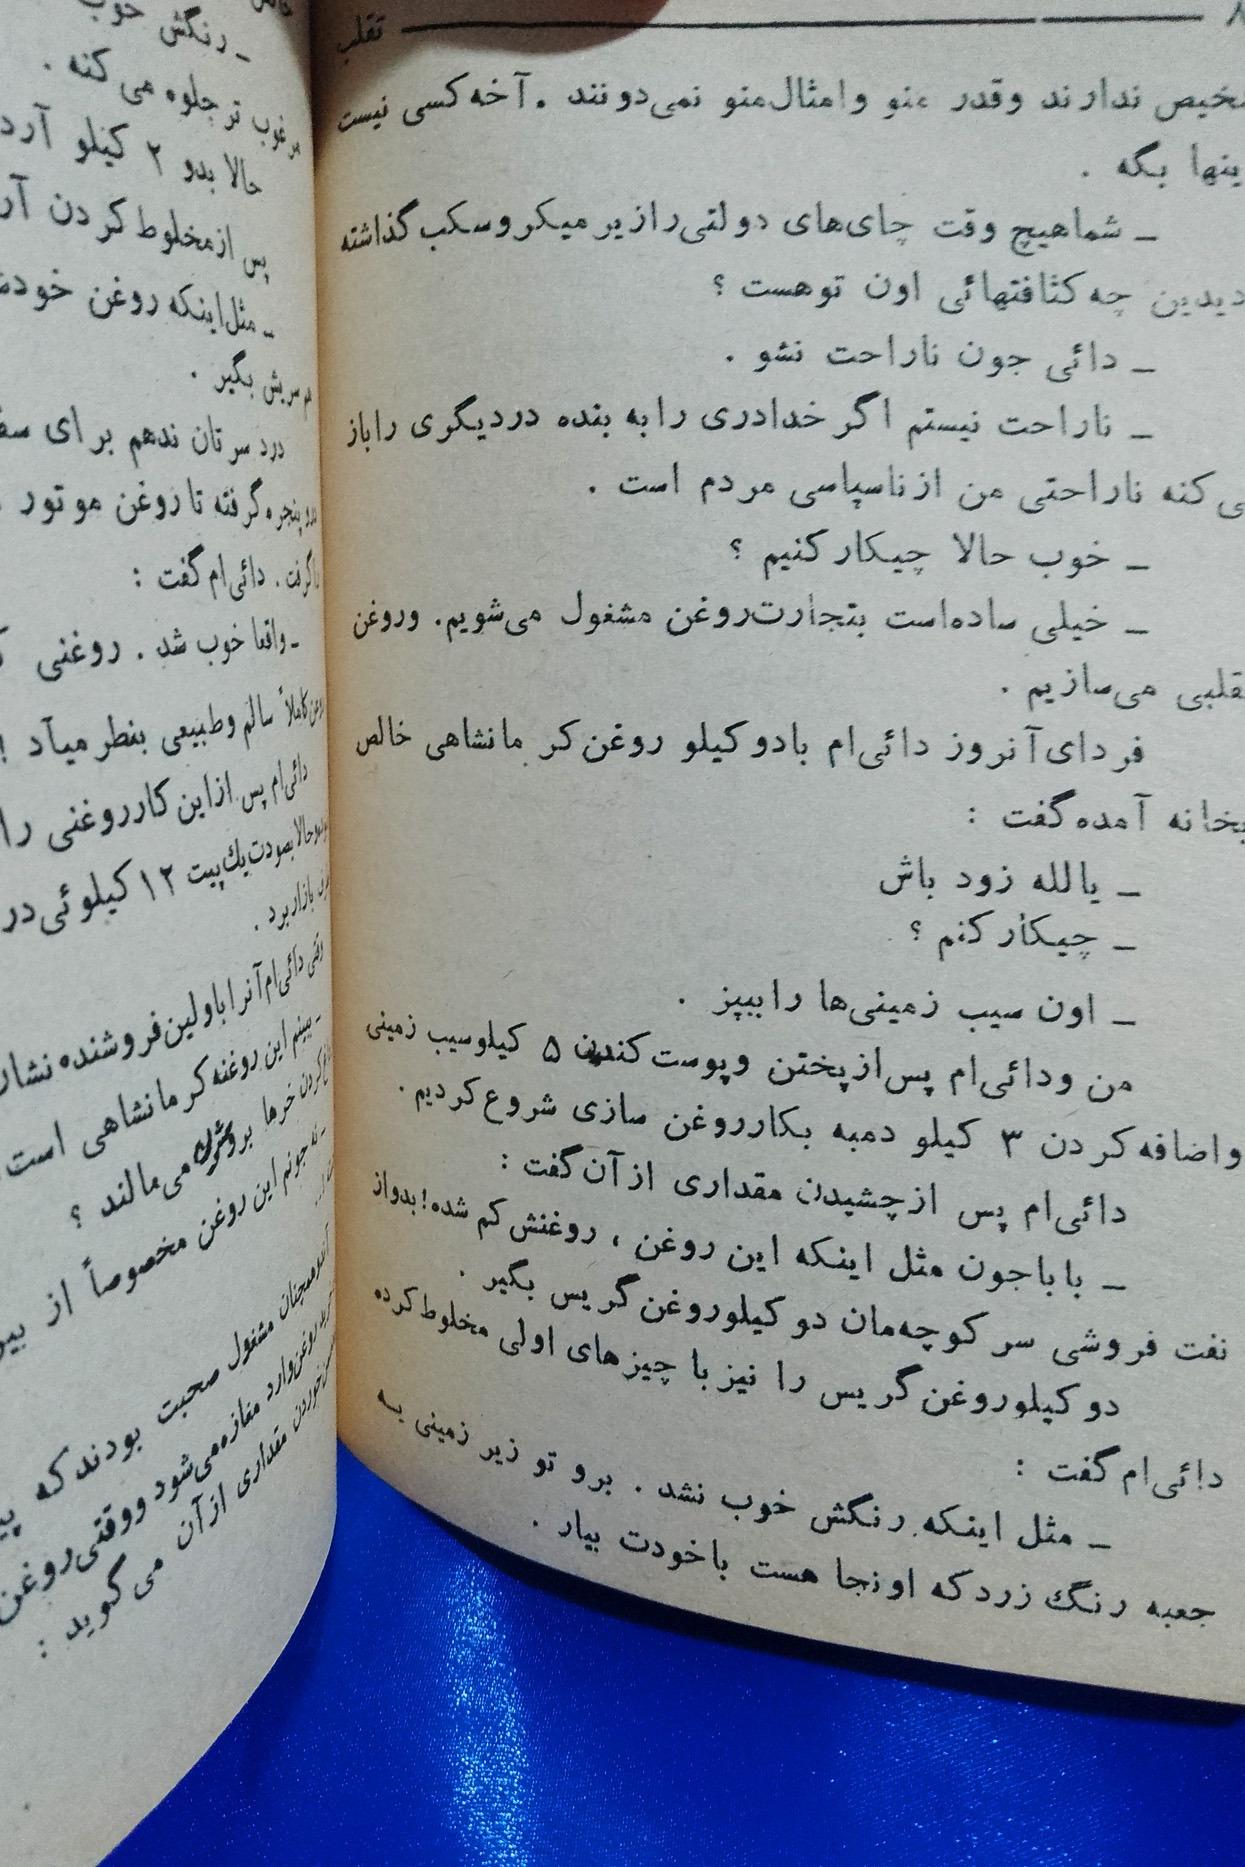 ۸ تقلب
ندارند وقدر منو وامثال‌منو نمی‌دونند . آخه کسی نیست
بگه .
ـ شما هیچ وقت چای‌های دولتی را زیر میکروسکب گذاشته
دیدین چه کثافتهائی اون تو هست ؟
ـ دائی جون ناراحت نشو .
ـ ناراحت نیستم اگر خدا دری را به بنده در دیگری را باز
کنه ناراحتی من از ناسپاسی مردم است .
ـ خوب حالا چیکار کنیم ؟
ـ خیلی ساده‌است بتجارت‌روغن مشغول می‌شویم. وروغن
می‌سازیم .
فردای آنروز دائی‌ام بادو کیلو روغن کرمانشاهی خالص
آمده گفت :
ـ یا‌لله زود باش
ـ چیکار کنم ؟
ـ اون سیب زمینی‌ها را بپز .
من ودائی‌ام پس از پختن وپوست کندن ۵ کیلو سیب زمینی
واضافه کردن ۳ کیلو دمبه بکار روغن سازی شروع کردیم .
دائی‌ام پس از چشیدن مقداری از آن گفت :
ـ باباجون مثل اینکه این روغن ، روغنش کم شده! بدو از
نفت فروشی سر کوچه‌مان دو کیلو روغن گریس بگیر .
دو کیلو روغن گریس را نیز با چیزهای اولی مخلوط کرده
دائی‌ام گفت :
ـ مثل اینکه رنگش خوب نشد . برو تو زیر زمینی یه
جعبه رنگ زرد که اونجا هست با خودت بیار .
ـ رنگش خوب
مرغوب تر جلوه می کنه .
حالا بدو ۲ کیلو آرد
پس از مخلوط کردن
ـ مثل‌اینکه روغن
هم سریش بگیر .
درد سرتان ندهم برای
پنجره گرفته تا روغن موتور
گرفت . دائی‌ام گفت :
ـ واقعا خوب شد . روغنی
کاملاً سالم وطبیعی بنظر میآد !
دائی‌ام پس از این کار روغنی را
حالا بصورت یك پیت ۱۲ کیلوئی در
بازار برد .
وقتی دائی‌ام آنرا باولین فروشنده نشان
ـ ببینم این روغنه کرمانشاهی است
کردن خرما بروش می‌مالند ؟
ـ نه جونم این روغن مخصوصاً از
همچنان مشغول صحبت بودند که
روغن وارد مغازه می‌شود ووقتی روغن
خوردن مقداری از آن می گوید :